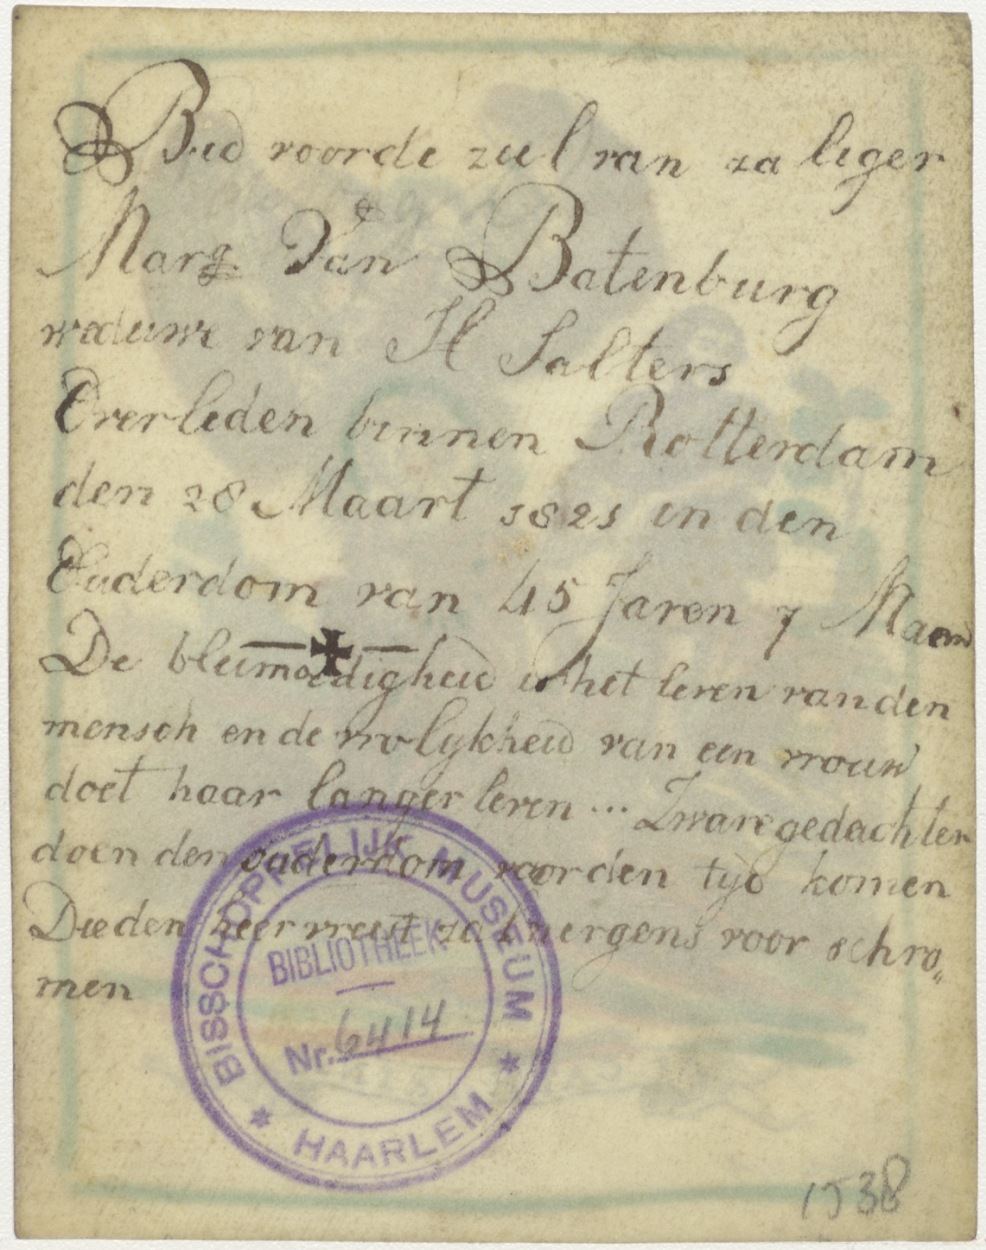 Bid voorde ziel van za liger
Marg Van Batenburg
weduwe van H Salters
Overleden binnen Rotterdam
den 28 Maart 1821 in den
Ouderdom van 45 Jaren 7 Maand
De bleimoedigheid is het leven vanden
mensch en de vrolykheid van een vrouw
doet haar langer leven ... Zware gedachten
doen den ouderdom voor den tyd komen
Die den heer vreest zal nergens voor schro„
men
BISSCHOPPELIJK MUSEUM
BIBLIOTHEEK
Nr. 6414
* HAARLEM *
1538